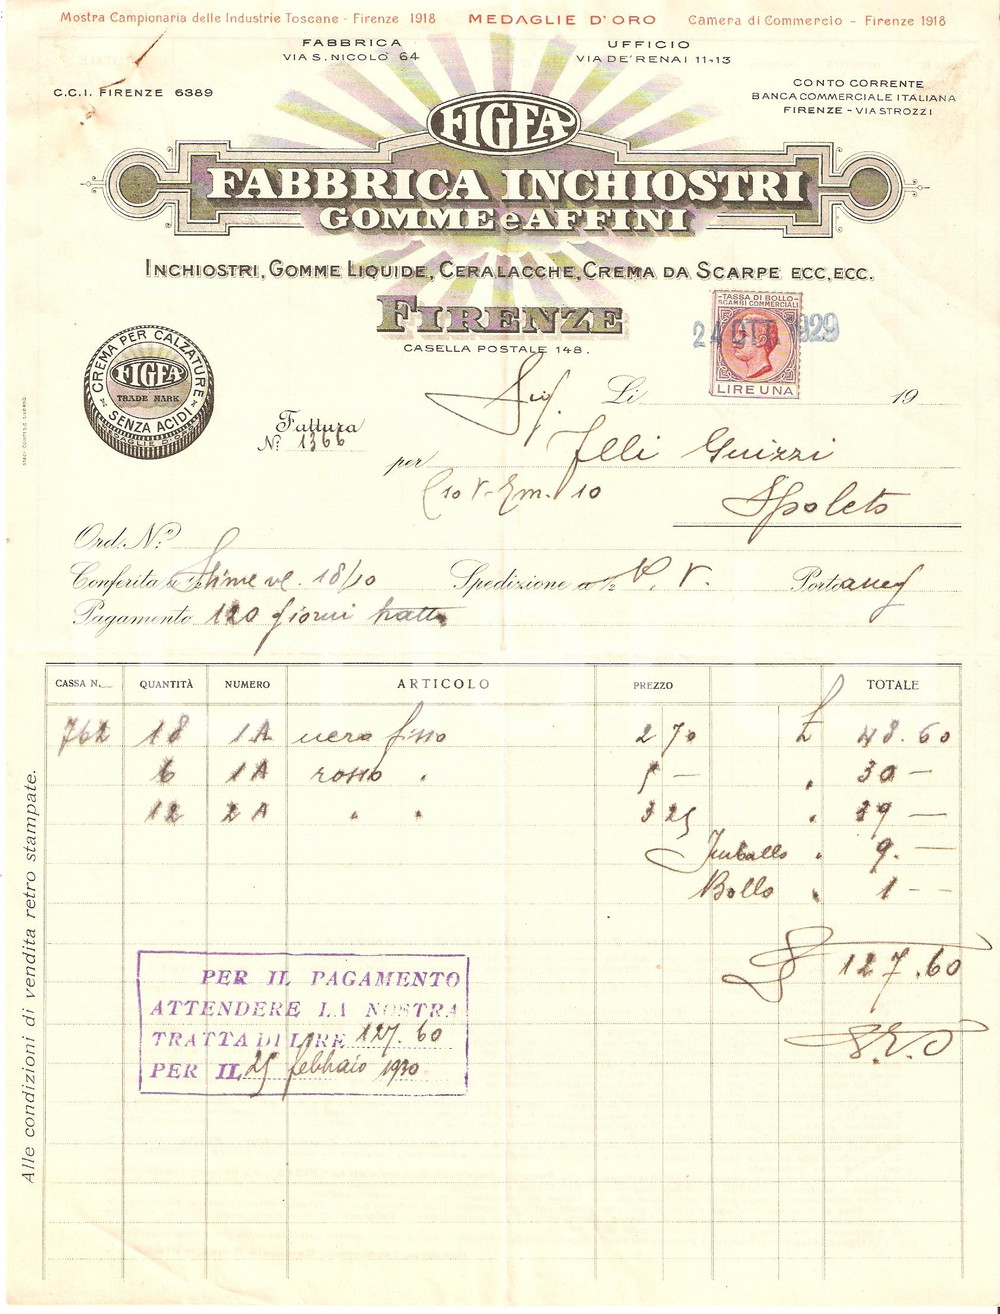 Mostra Campionaria delle Industrie Toscane - Firenze 1918 MEDAGLIE D'ORO Camera di Commercio - Firenze 1918
FABBRICA
VIA S. NICOLO' 64
UFFICIO
VIA DE' RENAI 11-13
C.C.I. FIRENZE 6389
CONTO CORRENTE
BANCA COMMERCIALE ITALIANA
FIRENZE - VIA STROZZI
FIGEA
FABBRICA INCHIOSTRI
GOMME e AFFINI
INCHIOSTRI, GOMME LIQUIDE, CERALACCHE, CREMA DA SCARPE ECC, ECC.
FIRENZE
CASELLA POSTALE 148.
TASSA DI BOLLO
SCAMBI COMMERCIALI
LIRE UNA
24 OTT. 1929
CREMA PER CALZATURE
FIGEA
TRADE MARK
SENZA ACIDI
Sig. Li 19
Fattura
N. 1366
per Flli Guizzi
10 Em. 10
Spoleto
Ord. N.o
Conferita a 1/2 ve. 18/10 Spedizione a 1/2 P. V. Porto
Pagamento 120 giorni tratta
CASSA N. QUANTITÀ NUMERO ARTICOLO PREZZO TOTALE
762 18 1A nera fissa 2 70 £ 48.60
6 1A rossa . 5 — " 30 —
12 2A " " 3 25 " 39 —
Imballo " 9. —
Bollo " 1 — —
£ 127.60
S.E.O
PER IL PAGAMENTO
ATTENDERE LA NOSTRA
TRATTA DI LIRE 127.60
PER IL 25 febbraio 1930
Alle condizioni di vendita retro stampate.